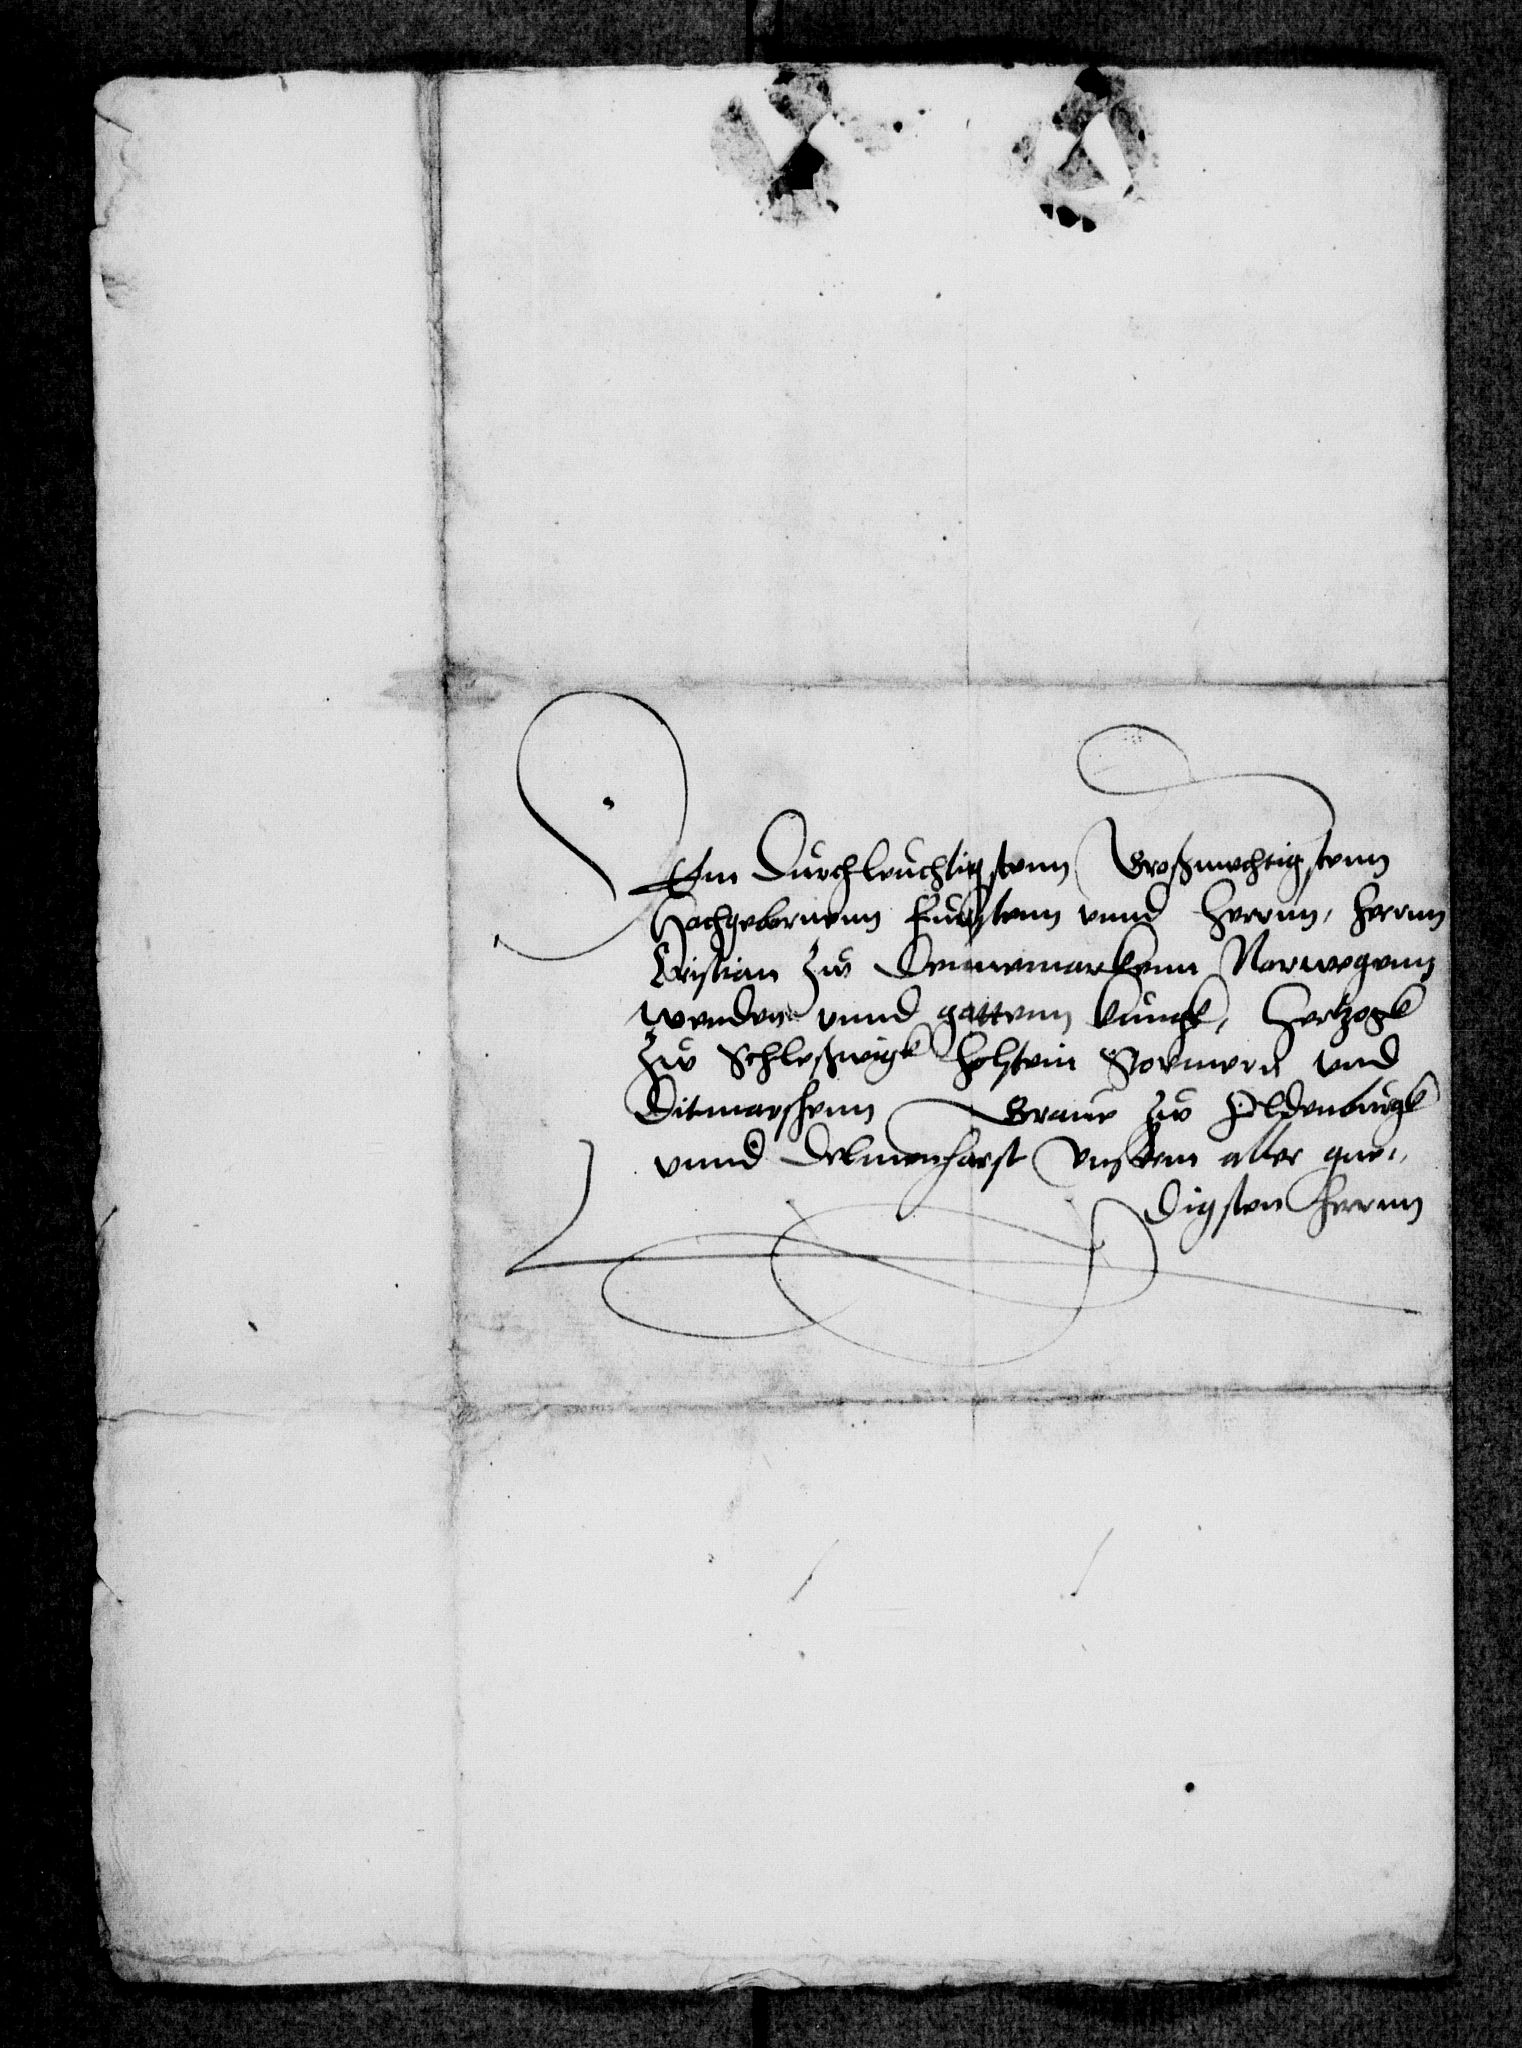 Dem Durchleuchtigstenn Großmechtigstenn
Hochgebornenn Furstenn unnd Herrnn, Herrnn
Cristian zu Dennemarkenn Norwegenn
Wenden unnd gottenn kungk, Hertzogk
zu Schleßwigk Holstein Stormern und
Ditmarshenn Graue zu Oldenburgk
unnd Delmenhorst unserm aller gne„
digsten herrnn